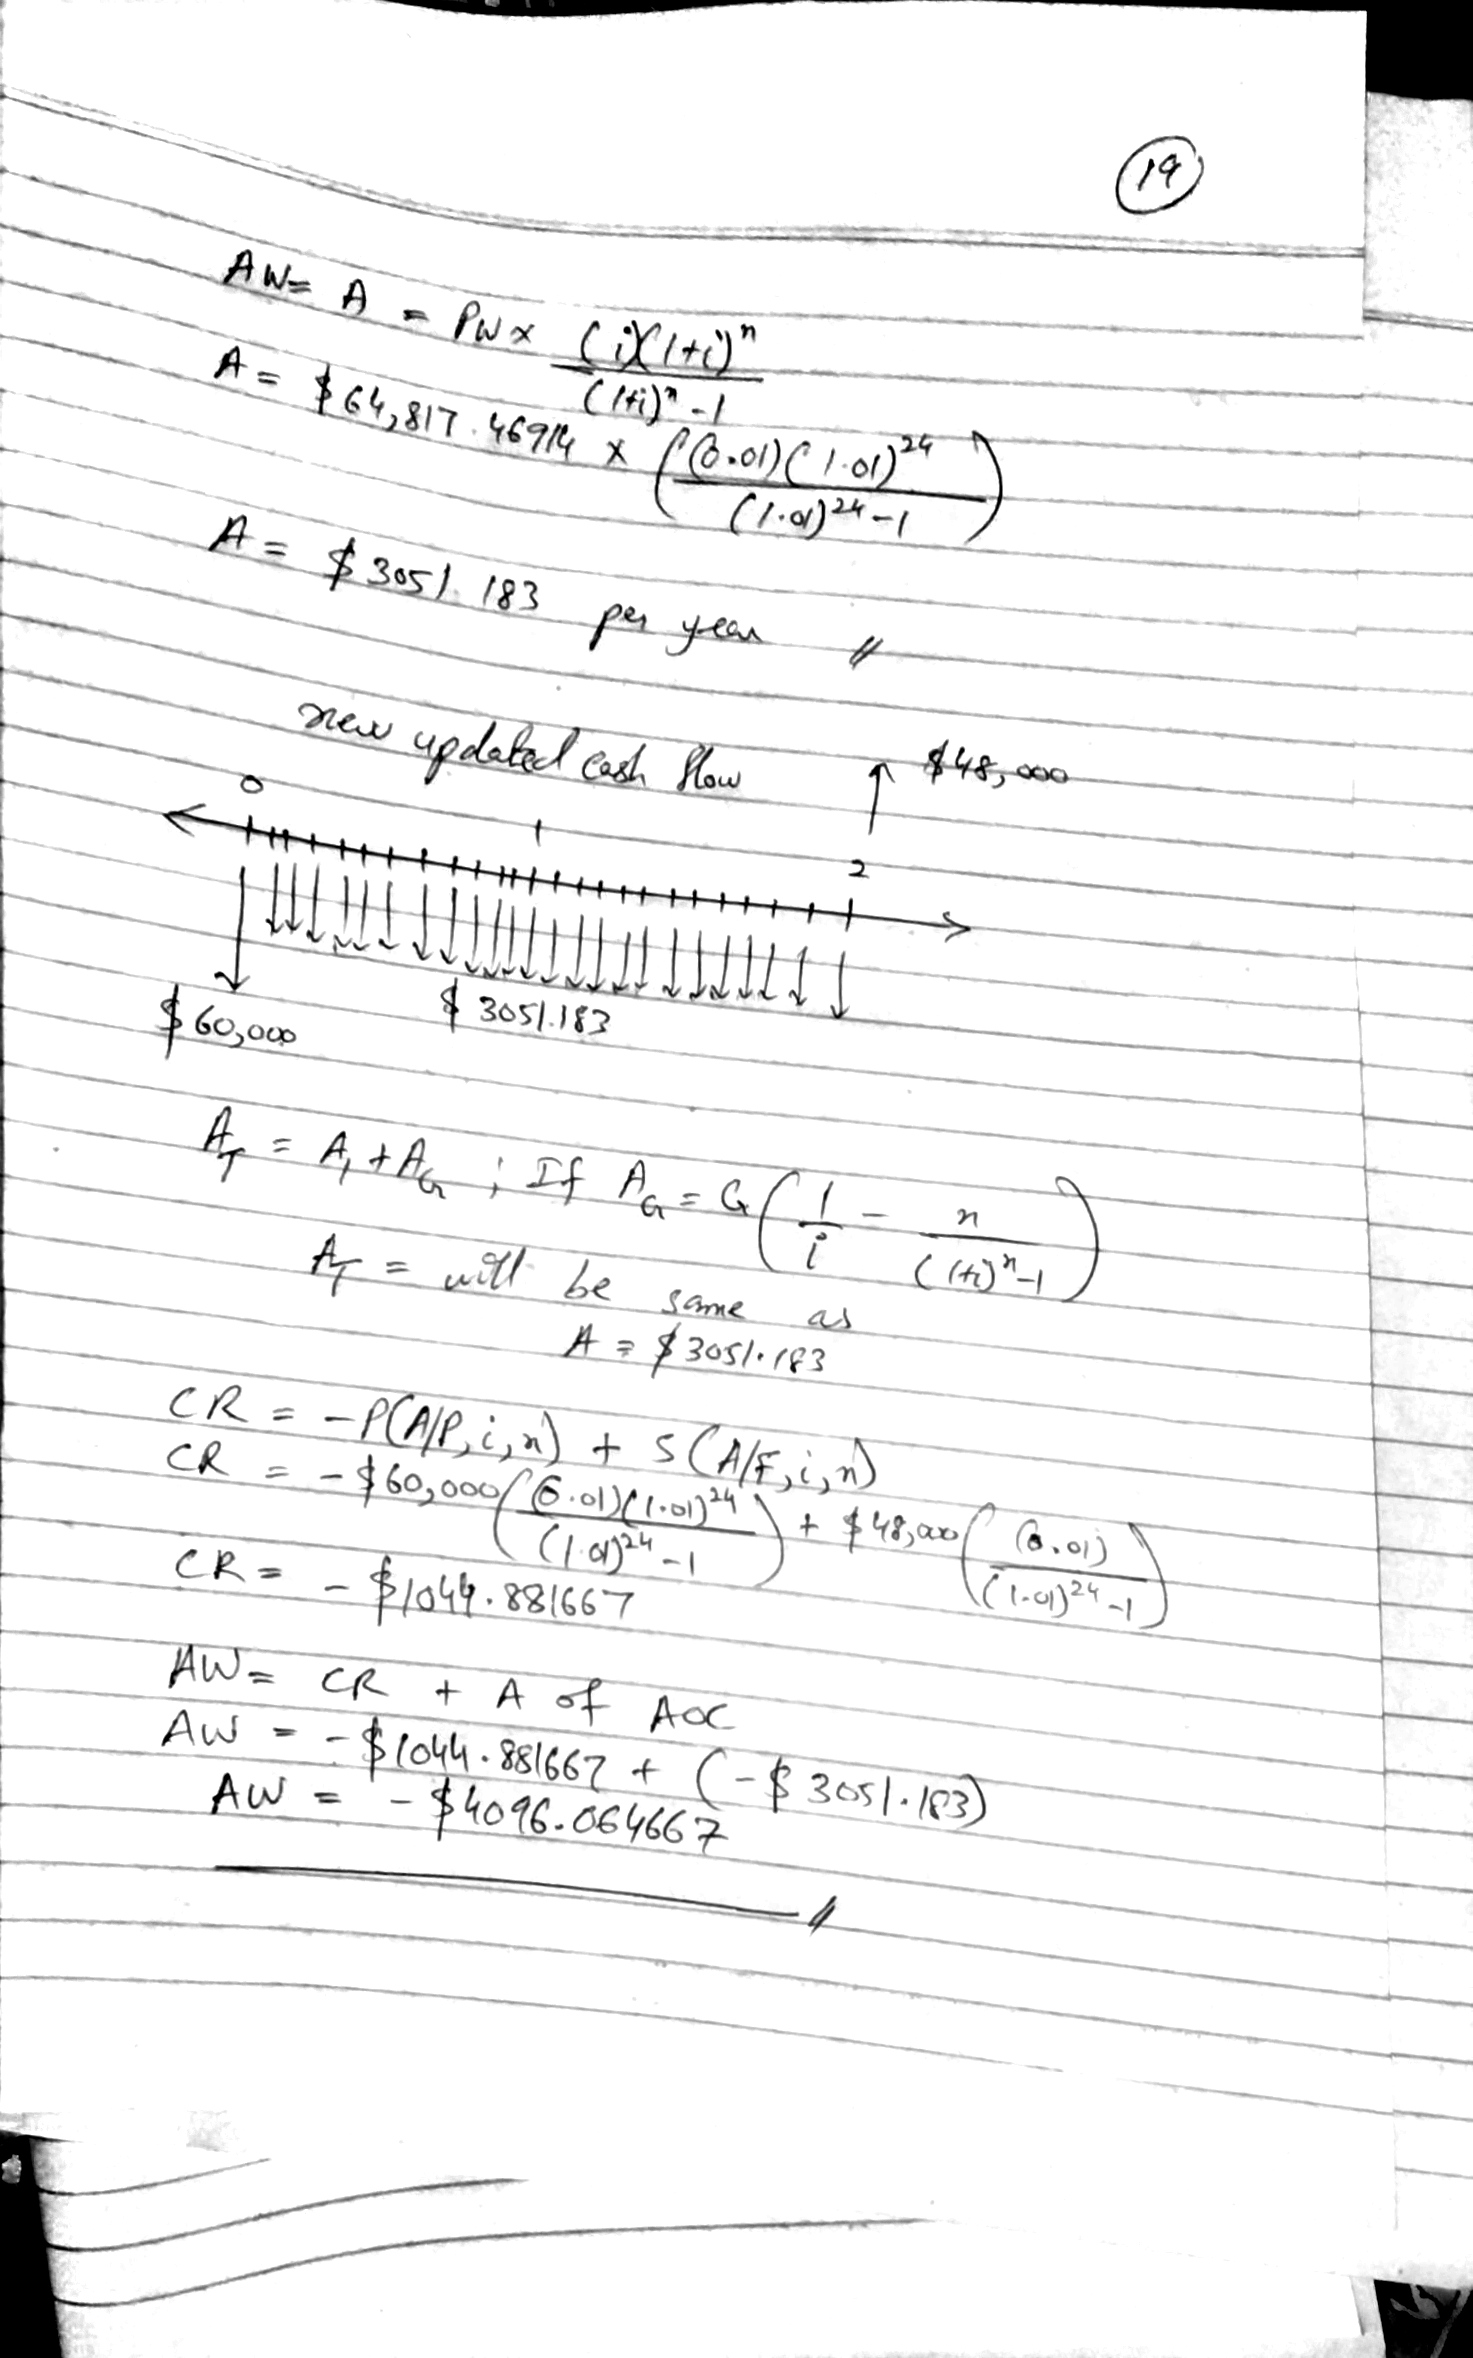 19
AW = A = PW x (i)(1+i)ⁿ / (1+i)ⁿ - 1
A = $64,817.46914 x ((0.01)(1.01)²⁴ / (1.01)²⁴ - 1)
A = $3051.183 per year //
new updated cash flow
$48,000
0 1 2
$60,000 $3051.183
A_T = A_1 + A_G ; If A_G = G(1/i - n/(1+i)ⁿ-1)
A_T = will be same as
A = $3051.183
CR = -P(A/P, i, n) + S(A/F, i, n)
CR = -$60,000((0.01)(1.01)²⁴ / (1.01)²⁴ - 1) + $48,000((0.01) / (1.01)²⁴ - 1)
CR = -$1044.881667
AW = CR + A of AOC
AW = -$1044.881667 + (-$3051.183)
AW = -$4096.064667
//